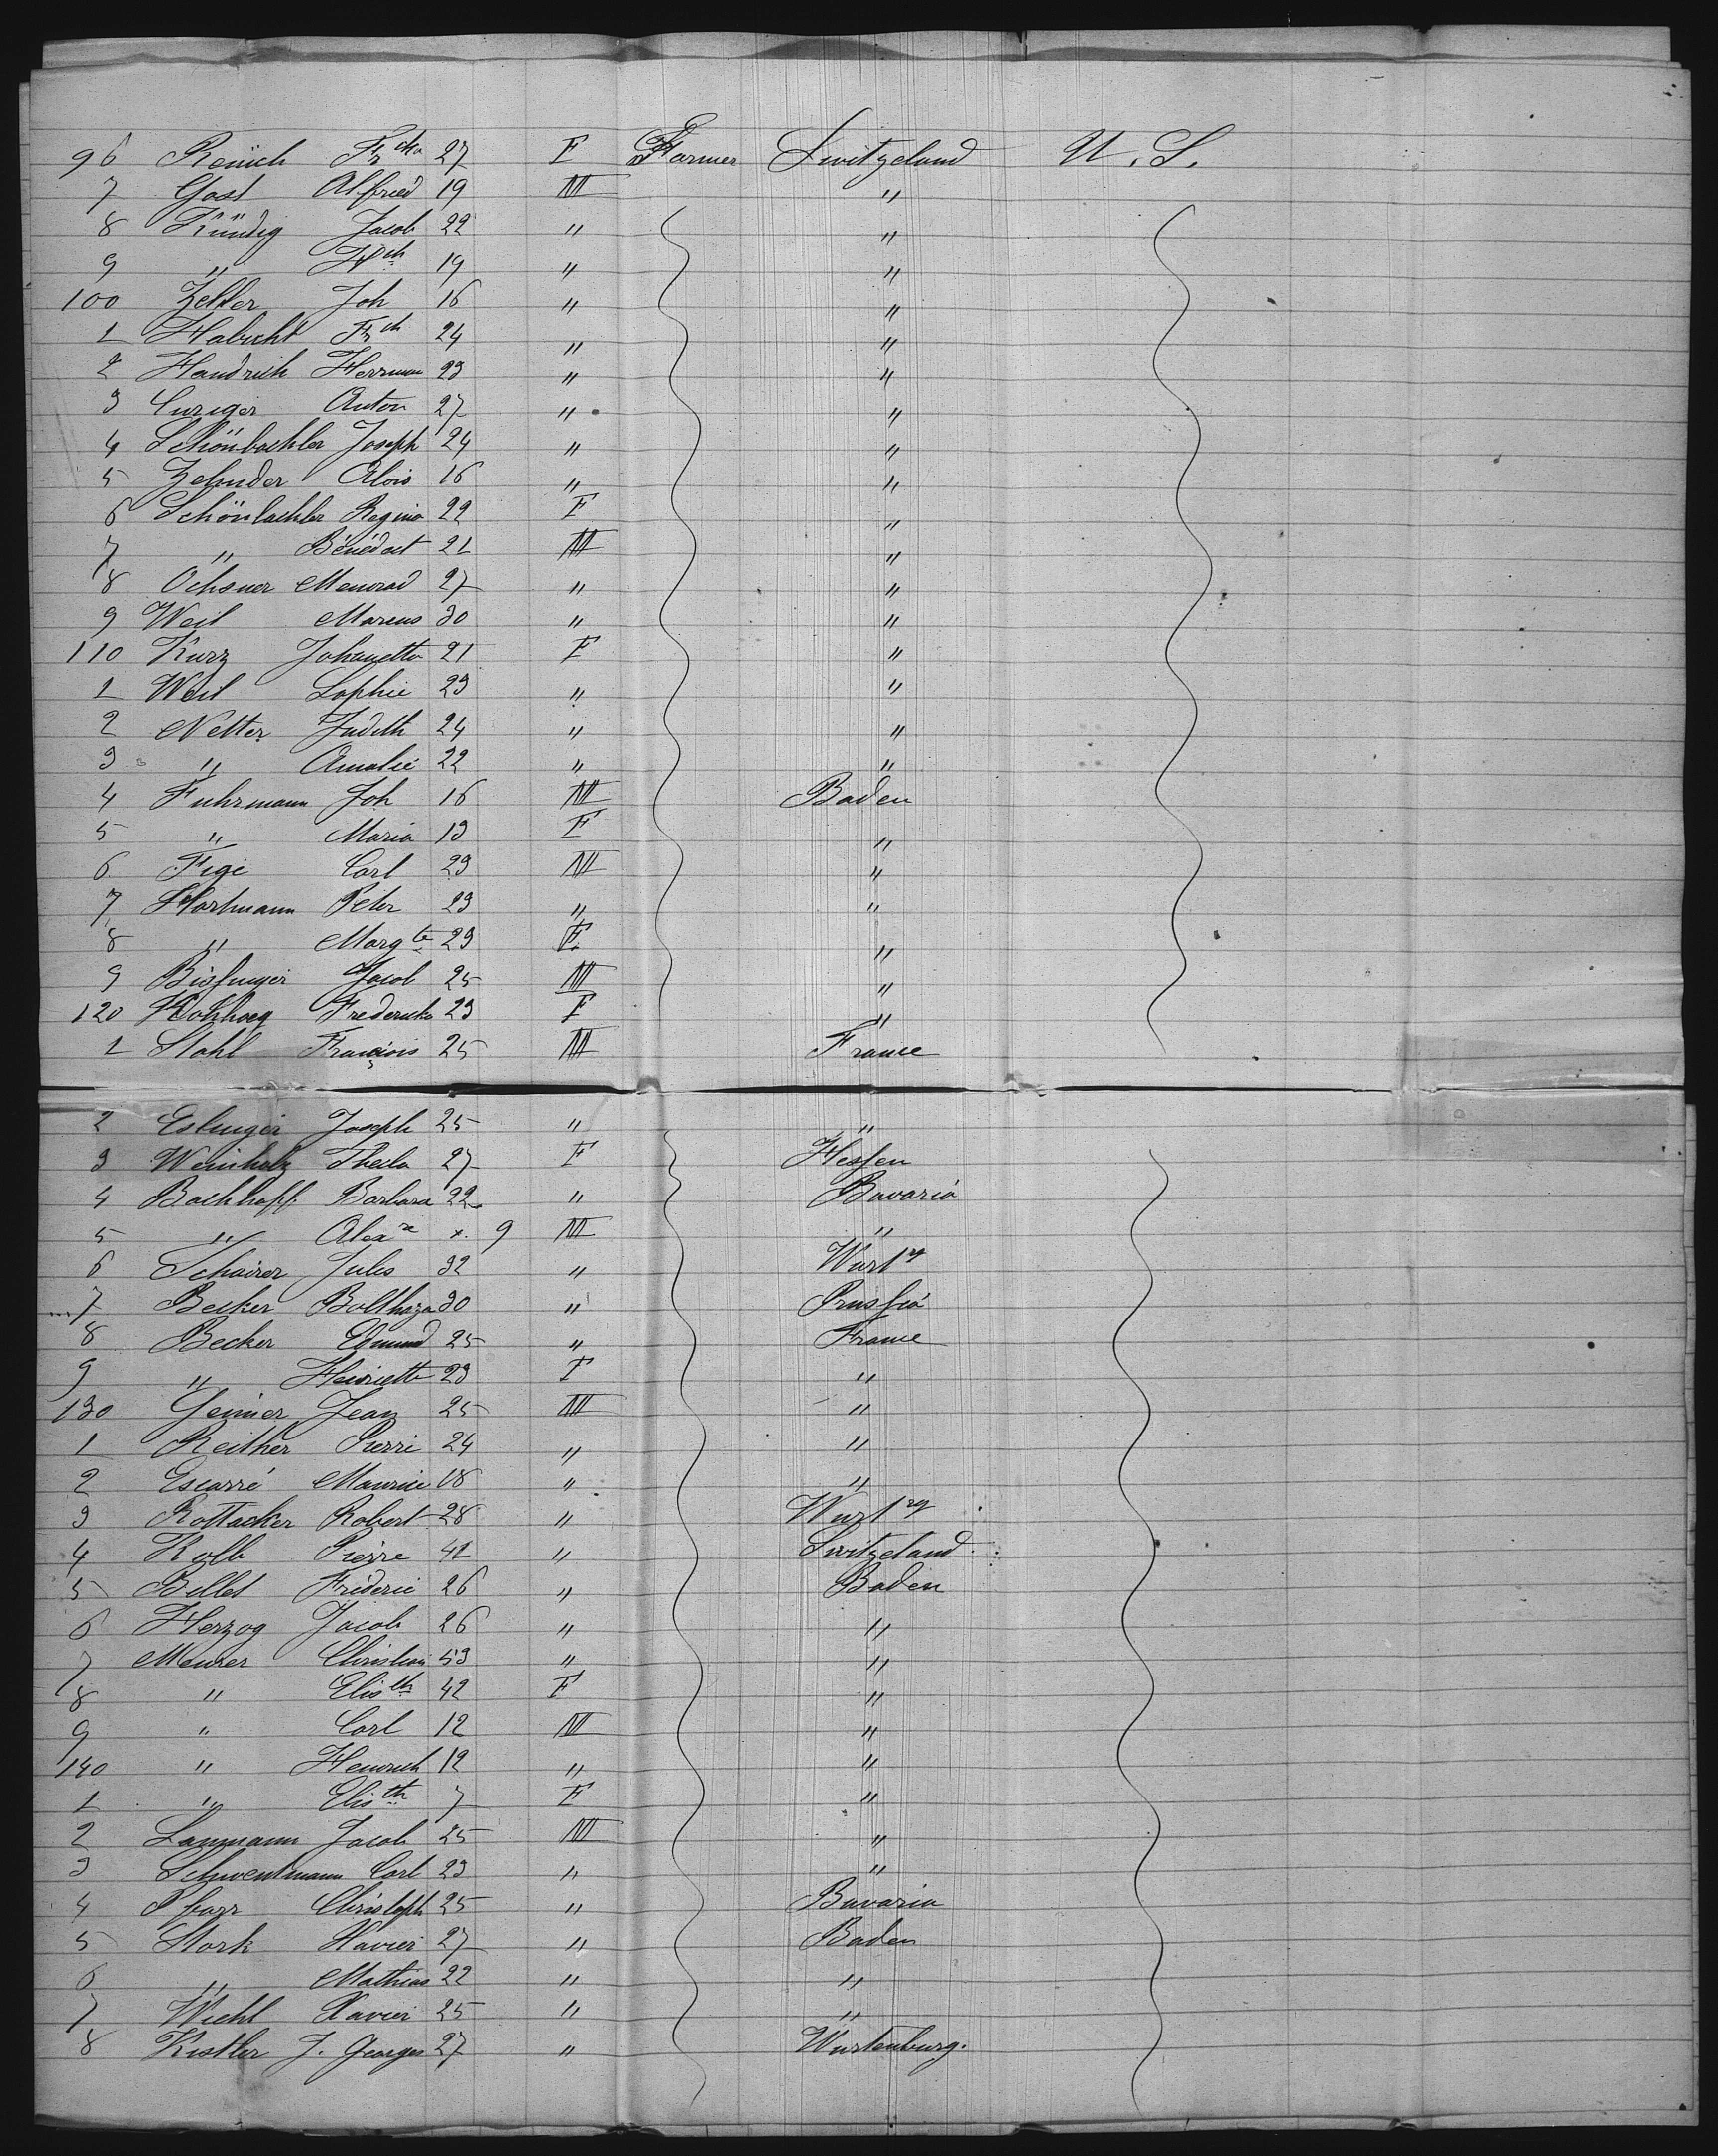 96 Reüich Frcka 27 F Farmer Switzeland U.S.
7 Gast Alfried 19 M "
8 Kündig Jacob 22 " "
9 " Hch 19 " "
100 Zeller Joh 16 " "
1 Habicht Frch 24 " "
2 Handrich Herrman 23 " "
3 Curiger Anton 27 " "
4 Schönbachler Joseph 24 " "
5 Zehnder Alois 16 " "
6 Schönbachler Regina 22 F "
7 " Bénédict 21 M "
8 Ochsner Menrad 27 " "
9 Weil Marcus 30 " "
110 Kurz Johanetta 21 F "
1 Weil Sophie 23 " "
2 Netter Judith 24 " "
3 " Amalie 22 " "
4 Fuhrmann Joh 16 M Baden
5 " Maria 13 F "
6 Figi Carl 23 M "
7 Hartmann Peter 23 " "
8 " Margte 23 F "
9 Jacob 25 M "
120 Fredericke 23 F "
1 Stahl François 25 M France
2 Eslinger Joseph 25 " "
3 Weinholz Thecla 27 F Hessen
4 Bachhoff Barbara 22 " Bavaria
5 " Alexre x. 9 M "
6 Schairer Jules 32 " Wurtg
7 Becker Balthaza 30 " Prussia
8 Becker Edmund 25 " France
9 " Henriette 23 F "
130 Geimer Jean 25 M "
1 Reither Pierre 24 " "
2 Escarré Maurice 18 " "
3 Rottacker Robert 28 " Wurtg
4 Kolb Pierre 41 " Switzeland
5 Billet Frideric 26 " Baden
6 Herzog Jacob 26 " "
7 Meurer Christian 53 " "
8 " Elisth 42 F "
9 " Carl 12 M "
140 " Heinrich 12 " "
1 " Elisth 7 F "
2 Lanmann Jacob 25 M "
3 Schwentmann Carl 23 " "
4 Pfarr Christoph 25 " Bavaria
5 Stork Xavier 27 " Baden
6 " Mathias 22 " "
7 Wiehl Xavier 25 " "
8 Kistler J. Georges 27 " Wurtenburg.